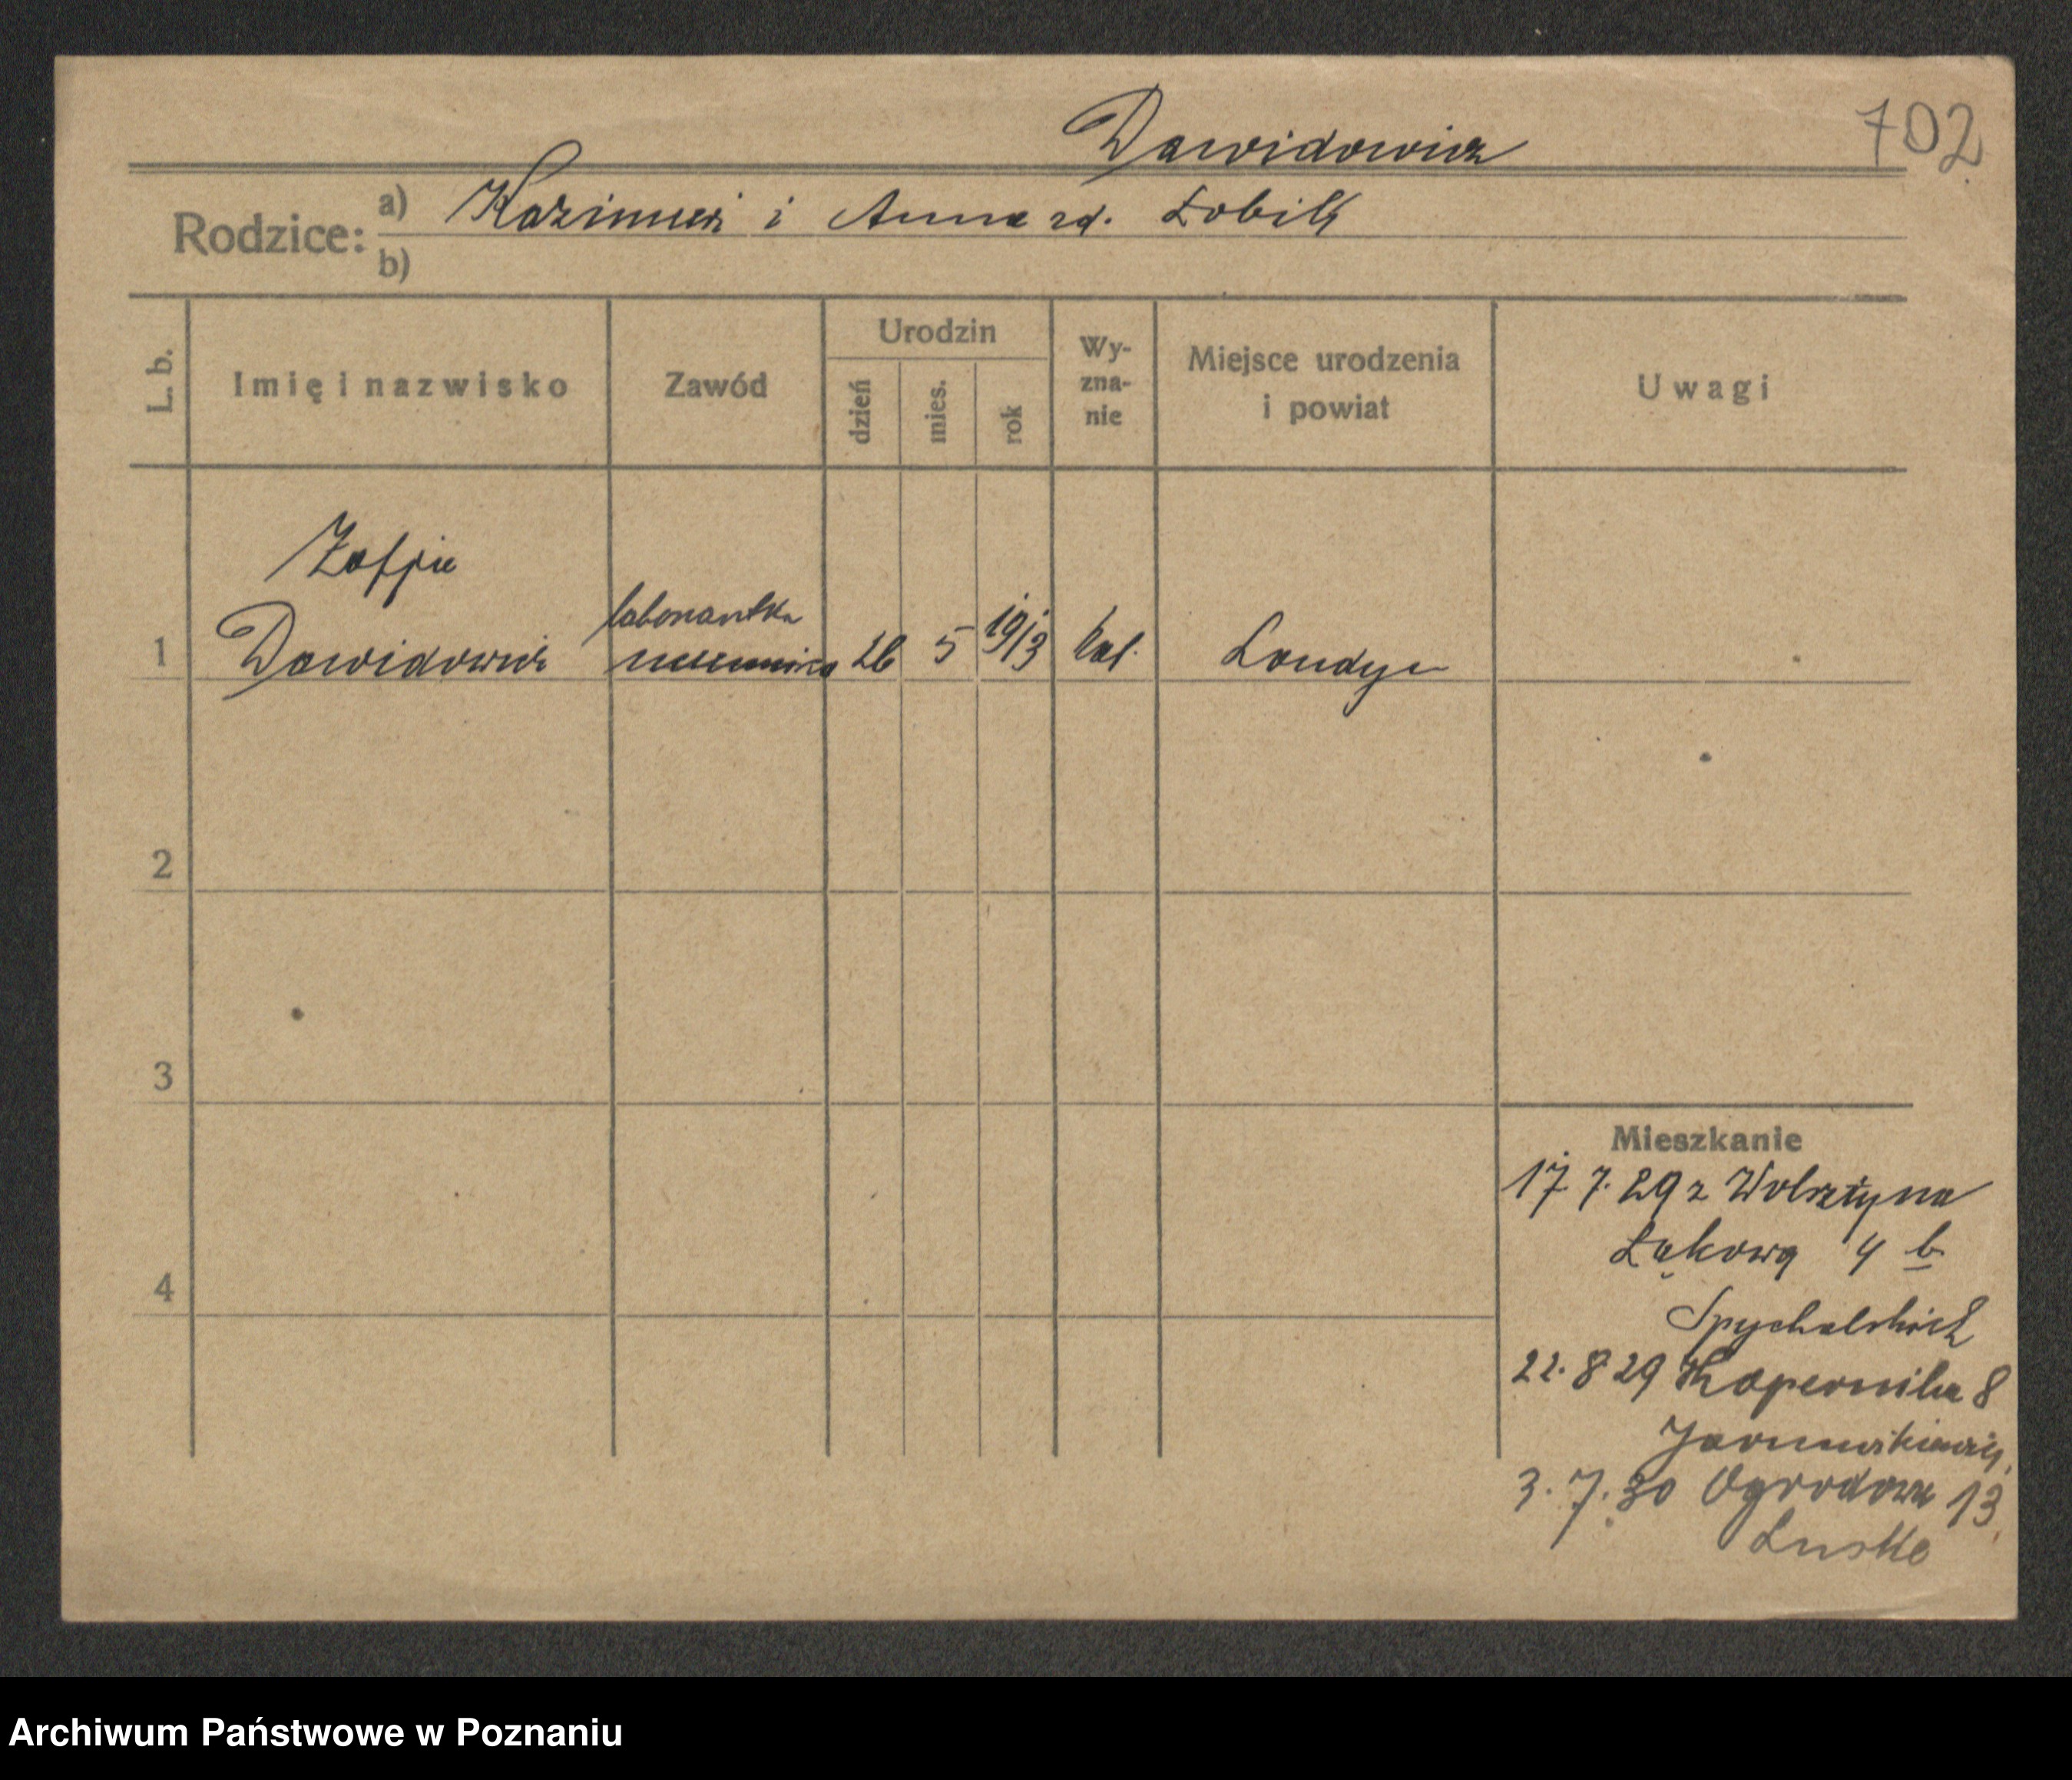 Dawidowicz
702
Rodzice: a) Kazimierz i Anna zd. Łobik
b)
L. b.
Imię i nazwisko
Zawód
Urodzin
dzień
mies.
rok
Wy-
zna-
nie
Miejsce urodzenia
i powiat
Uwagi
Zofja
laborantka
1 Dawidowicz uczennica 26 5 1913 kat. Londyn
2
3
4
Mieszkanie
17. 7. 29 z Wolsztyna
Łąkowa 4 b
Spychalskich
22. 8 29 Kopernika 8
3. 7. 30 Ogrodowa 13
Archiwum Państwowe w Poznaniu